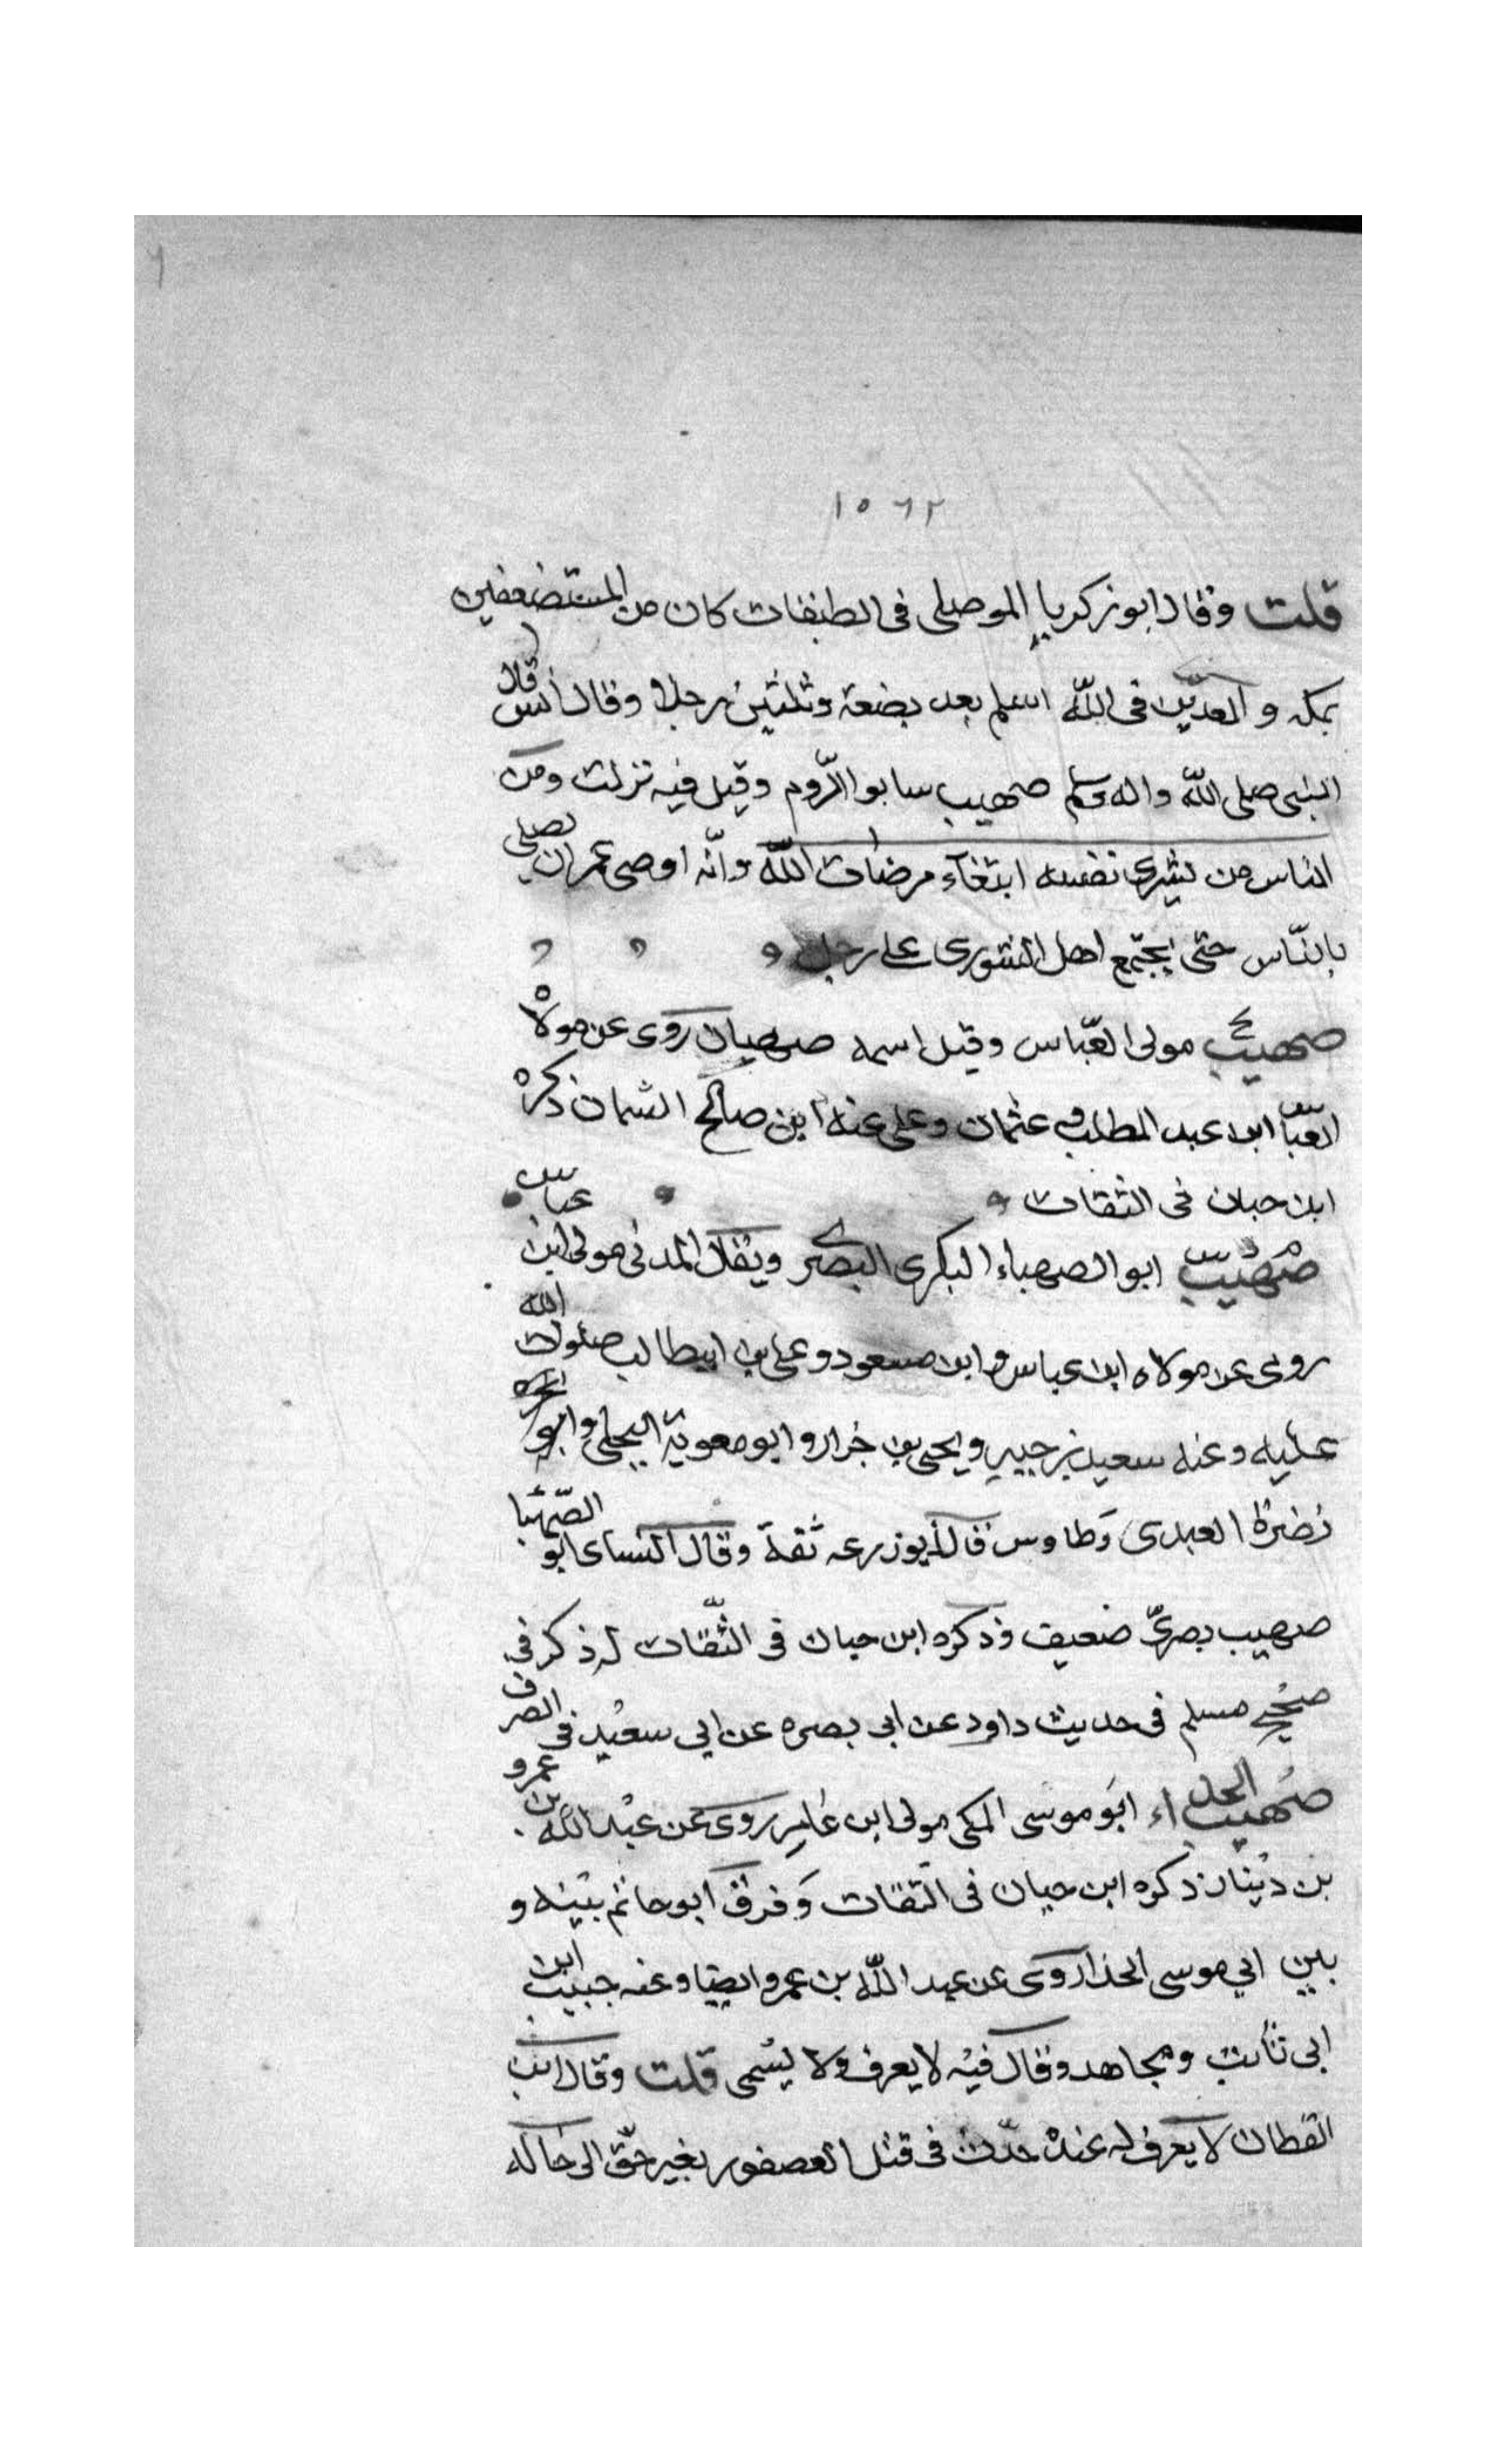 ٦
١٥٦٢
قلت وقال ابو زكريا الموصلى فى الطبقات كان من المستضعفين
بمكه و المعذبين فى الله اسلم بعد بضعة وثلثين رجلا وقال انس قال
النبى صلى الله واله وسلم صهيب سابق الروم وقيل فيه نزلت ومن
الناس من يشرى نفسه ابتغاء مرضات الله وانه اوصى عمران يصلى
بالناس حتى يجتمع اهل الشورى على رجل
صهيب مولى العباس وقيل اسمه صهبان روى عن مولاه
العباس ابن عبد المطلب و عثمان وعلى عنه ابن صالح السمان ذكره
ابن حبان فى الثقات
صهيب ابو الصهباء البكرى البصرى ويقال المدنى مولى ابن عباس
روى عن مولاه ابن عباس و ابن مسعود و على بن ابيطالب صلوات الله
عليه وعنه سعيد بن جبير ويحيى بن جزار و ابو معوية البجلى وابو
نضرة العبدى وطاوس قال ابو زرعه ثقة وقال النساى ابو الصهبا
صهيب بصرى ضعيف وذكره ابن حبان فى الثقات له ذكر فى
صحيح مسلم فى حديث داود عن ابى بصره عن ابى سعيد فى الصرف
صهيب الحداء ابو موسى المكى مولى ابن عامر روى عن عبد الله بن عمرو
بن دينار ذكره ابن حبان فى الثقات وفرق ابو حاتم بينه و
بين ابي موسى الحذا روى عن عبد الله بن عمرو ايضا وعنه حبيب ابن
ابى ثابت ومجاهد وقال فيه لا يعرف ولا يسمى قلت وقال ابن
القطان لا يعرف له عنده حدث فى قتل العصفور بغير حق الى خاله